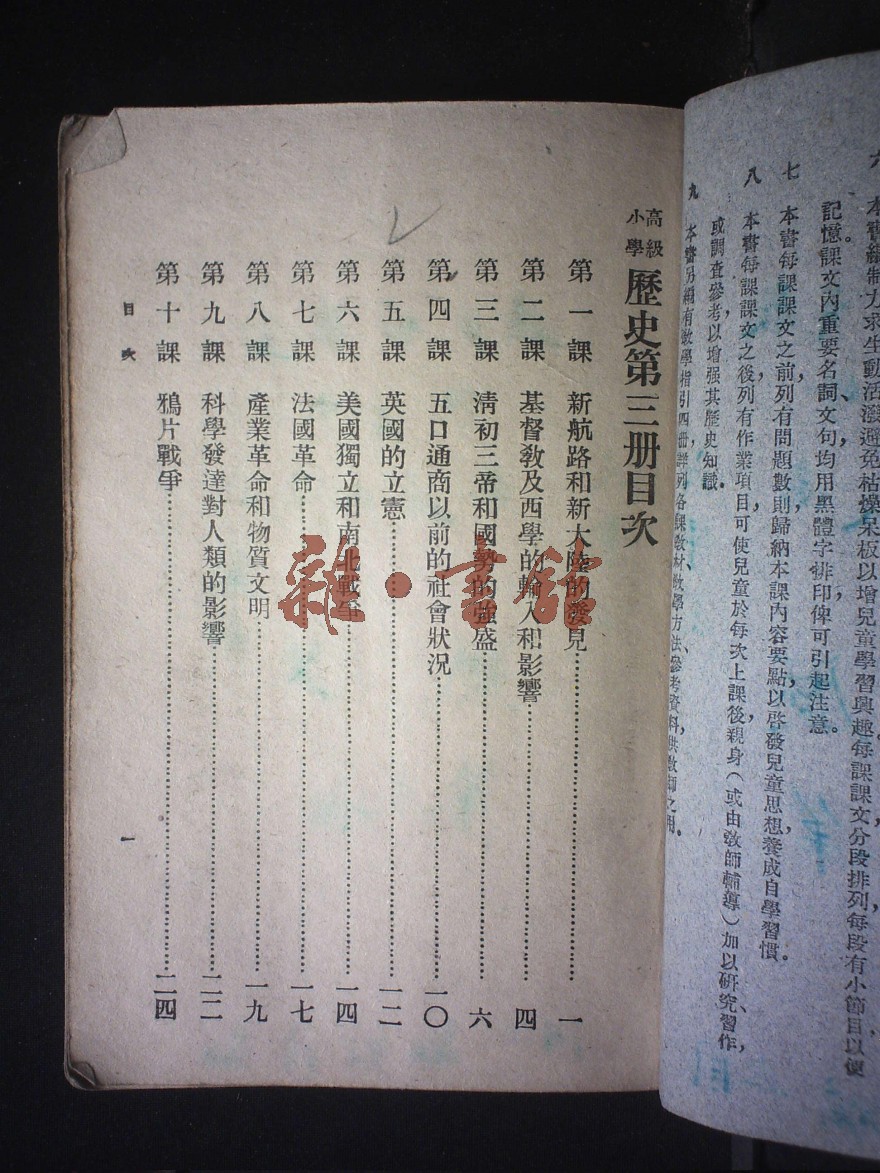 六 本書編制力求生動活潑避免枯燥呆板以增兒童學習興趣每課課文分段排列每段有小節目以便
記憶課文內重要名詞文句均用黑體字排印俾可引起注意。
七 本書每課課文之前列有問題數則歸納本課內容要點以啓發兒童思想養成自學習慣。
八 本書每課課文之後列有作業項目可使兒童於每次上課後親身（或由教師輔導）加以研究、習作、
或調查參考以增强其歷史知識。
九 本書另編有教學指引四冊詳列各課教材、教學方法、參考資料供教師之用。
高級小學 歷史第三册目次
第一課 新航路和新大陸的發見……一
第二課 基督教及西學的輸入和影響……四
第三課 清初三帝和國勢的強盛……六
第四課 五口通商以前的社會狀況……一〇
第五課 英國的立憲……一二
第六課 美國獨立和南北戰爭……一四
第七課 法國革命……一七
第八課 產業革命和物質文明……一九
第九課 科學發達對人類的影響……二二
第十課 鴉片戰爭……二四
目次 一
雜·書館